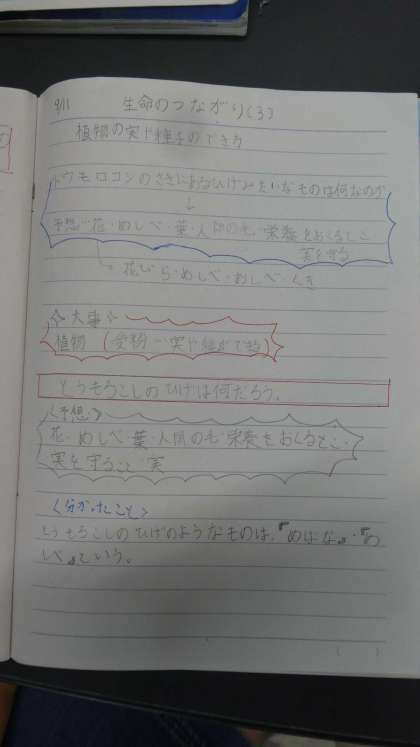 9/11 生命のつながり(3)
植物の実や種子のでき方
トウモロコシのさきにあるひげみたいなものは何なのか
↓
予想 花・めしべ・葉・人間の毛・栄養をおくるとこ・
実を守る
花びら・めしべ・おしべ・くき
大事
植物 (受粉→実や種ができる)
とうもろこしのひげは何だろう。
<予想>
花・めしべ・葉・人間の毛・栄養をおくるとこ・
実を守ること 実
<分かったこと>
とうもろこしのひげのようなものは、『めばな』・『め
べ』という。